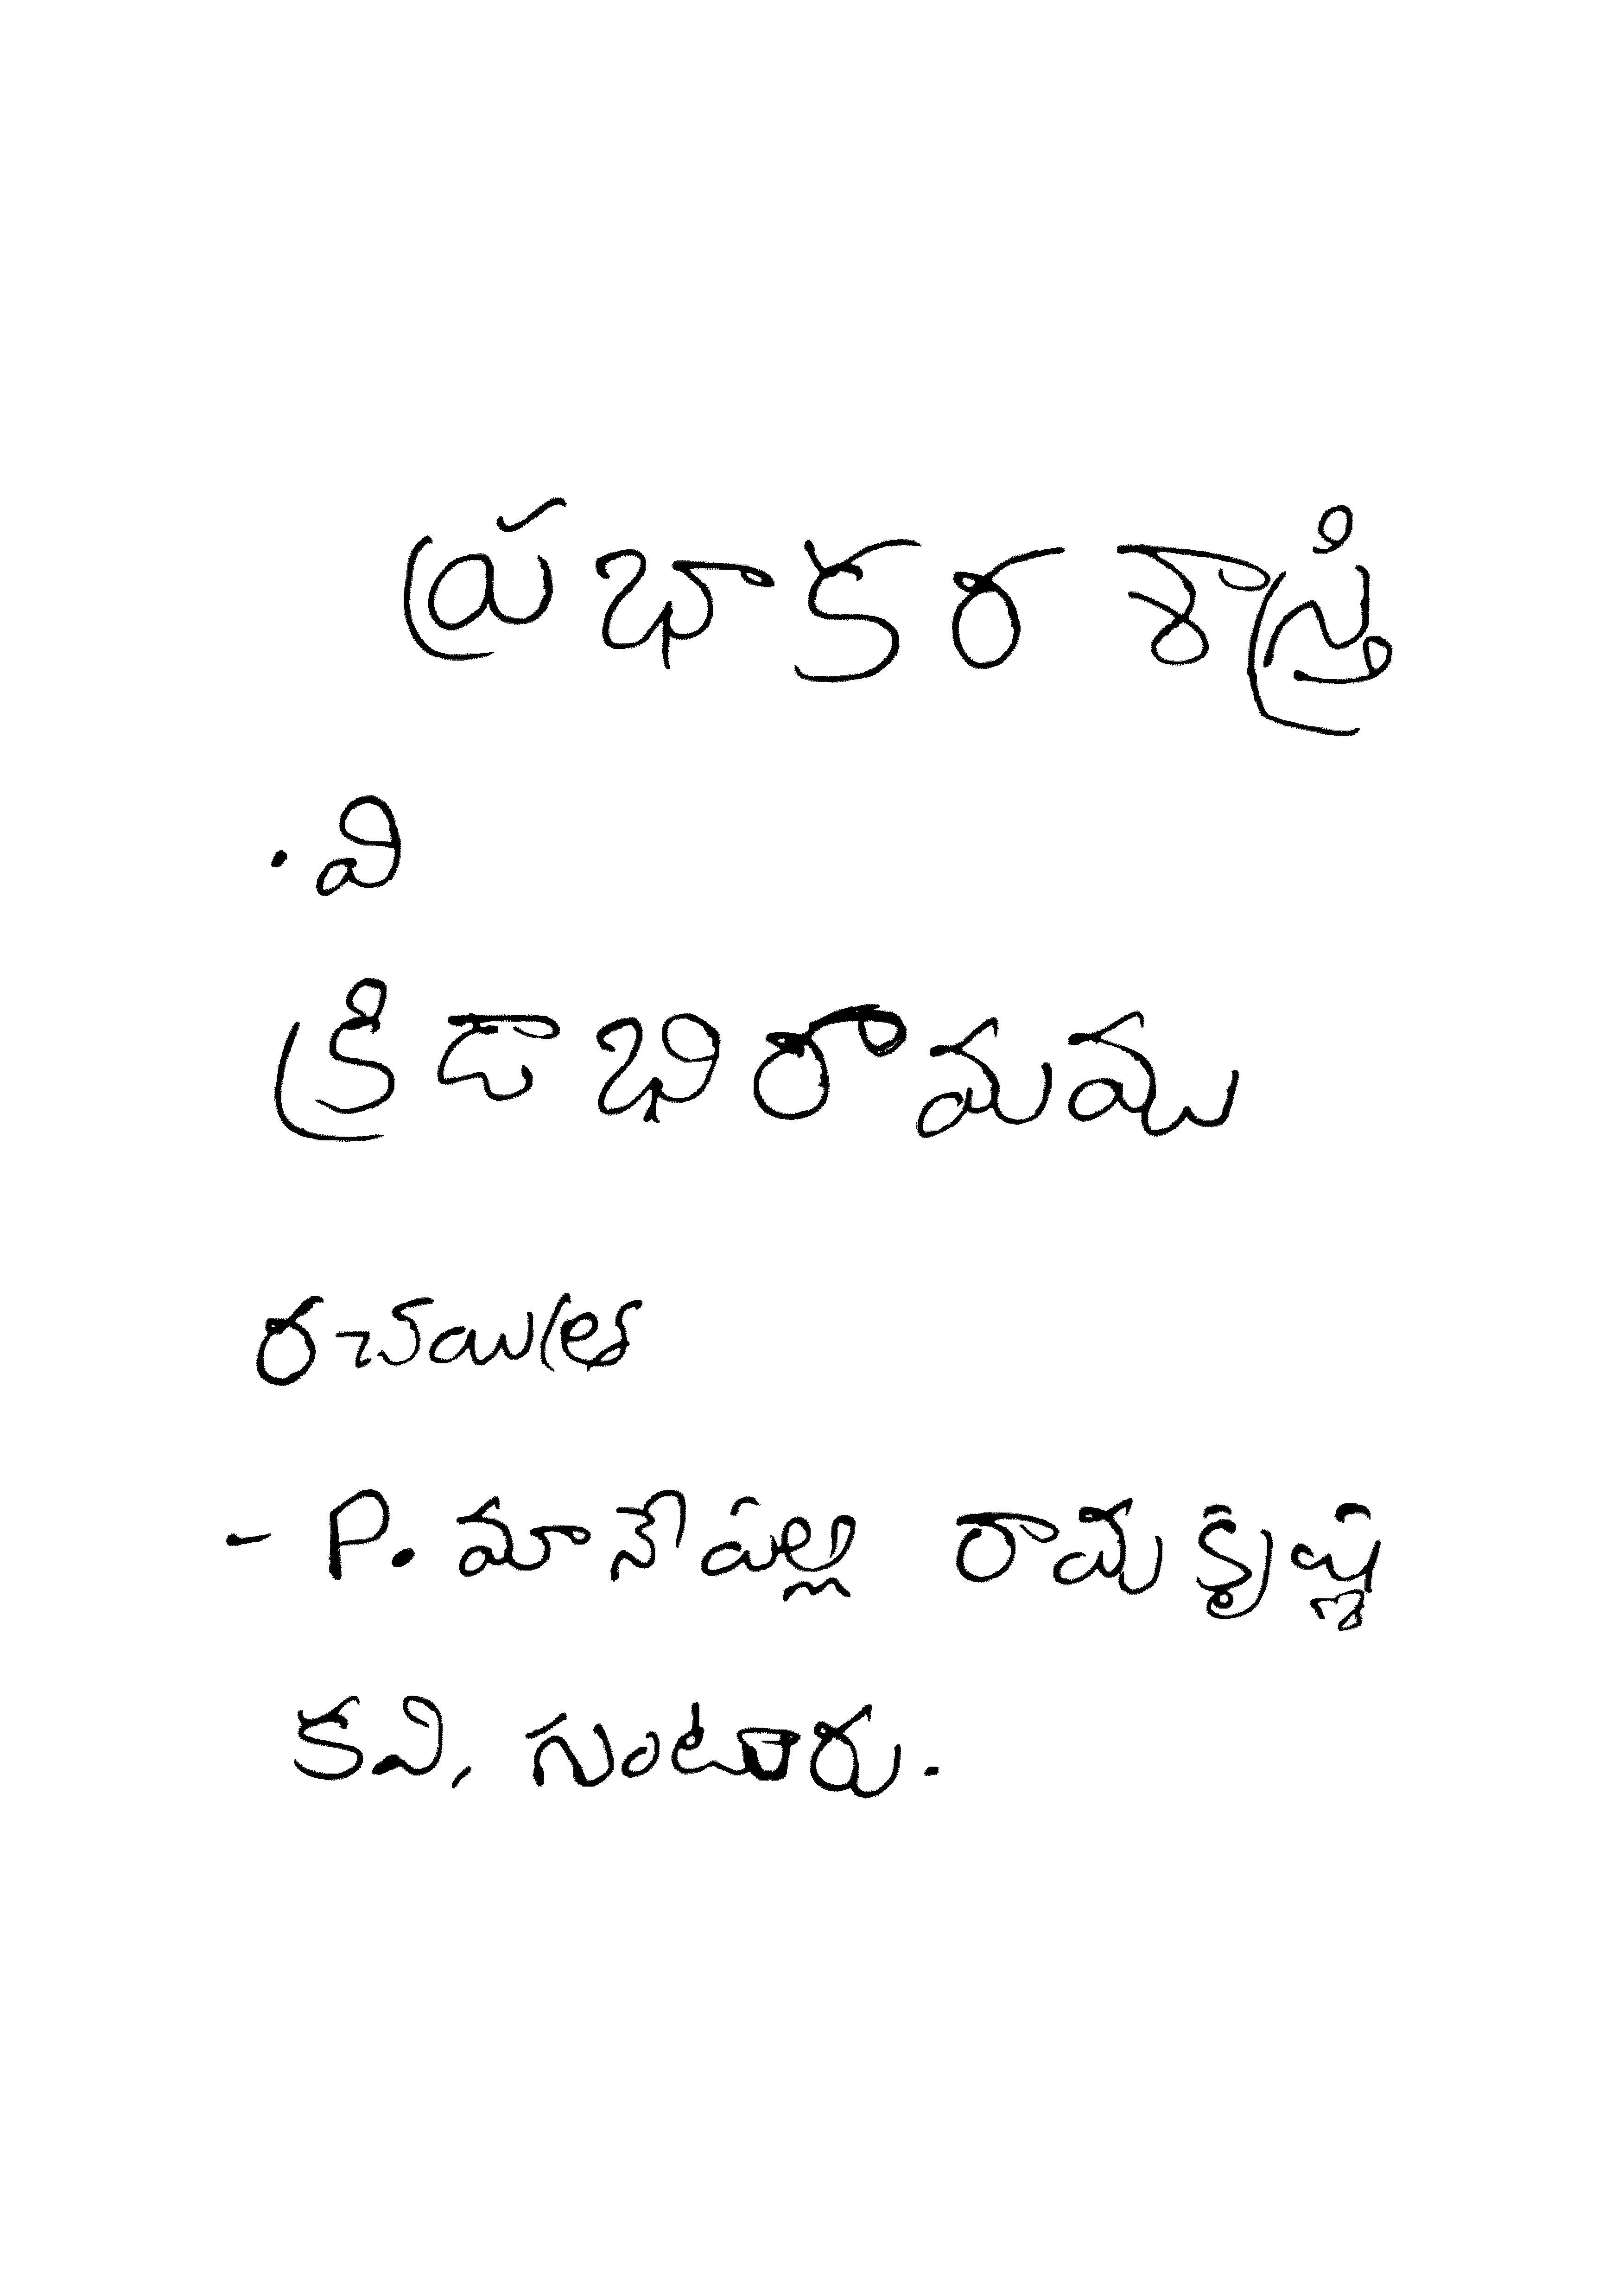 ప్రభాకర శాస్త్రి
. వి
క్రిడాభిరామము
రచయిత్రి
- P. మానేపల్లి రామకృష్ణ
కవి, గుంటూరు.